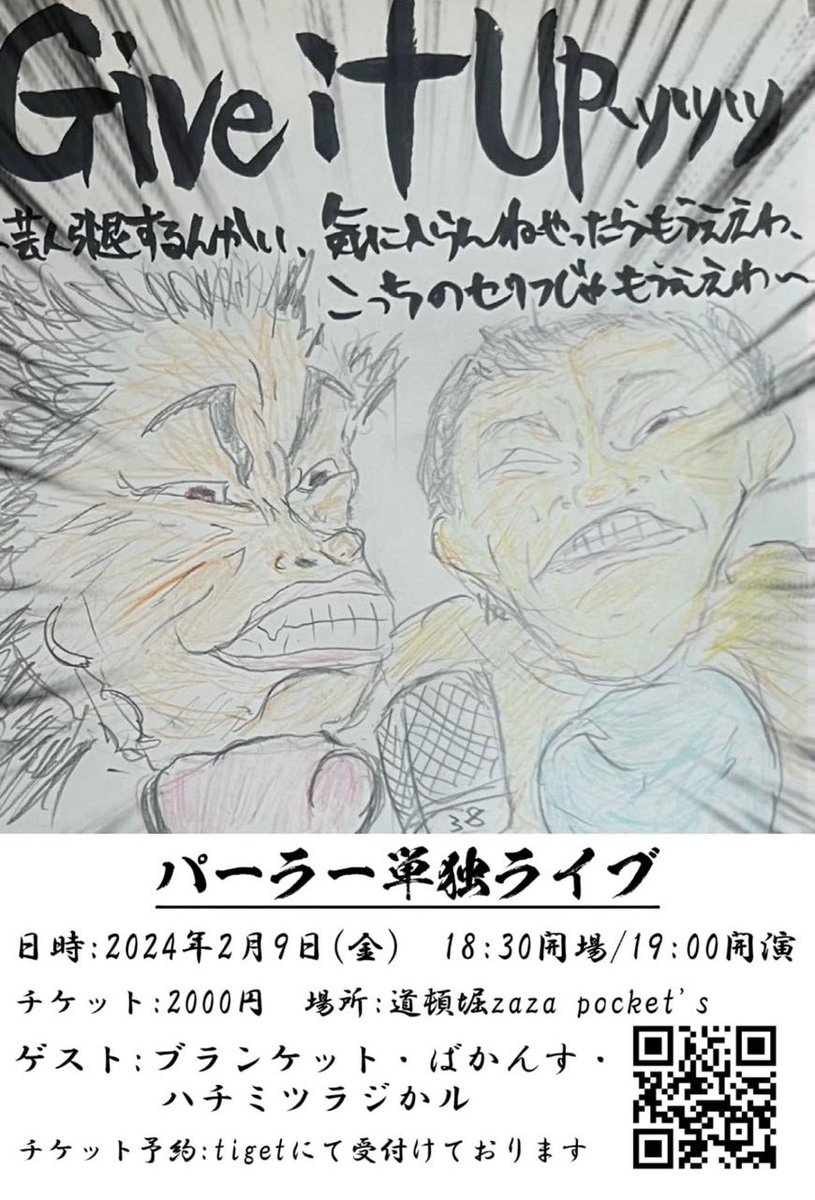 Give it UP〜ッッッ
芸人引退するんかい、気に入らんねやったらもうええわ、
こっちのセリフじゃもうええわ〜
38
パーラー単独ライブ
日時:2024年2月9日(金) 18:30開場/19:00開演
チケット:2000円 場所:道頓堀zaza pocket's
ゲスト:ブランケット・ばかんす・
ハチミツラジかル
チケット予約:tigetにて受付けております